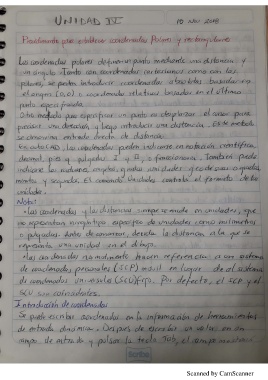 UNIDAD IV 10 NOV 2018
Procedimiento para establecer coordenadas Polares y rectangulares
Las coordenadas polares definen un punto mediante una distancia y
un ángulo. Tanto con coordenadas cartesianas como con las
polares, se pueden introducir coordenadas absolutas basadas en
el origen (0,0) o coordenadas relativas basadas en el último
punto especificado.
Otro método para especificar un punto es desplazar el cursor para
precisar una dirección, y luego introducir una distancia. Este método
se denomina entrada directa de distancia.
las coordenadas pueden indicarse en notación científica,
decimal, pies y pulgadas o fraccionaria. También puede
indicar los
minutos y segundos. El comando Unidades controla el formato de las
unidades.
Nota:
• las coordenadas y las distancias siempre se miden en unidades, que
no representan ningún tipo específico de unidades como milímetros
o pulgadas. Antes de comenzar, decida la distancia a la que se
representa una unidad en el dibujo.
• las coordenadas normalmente hacen referencia a un sistema
de coordenadas personales (SCP) móvil en lugar de al sistema
de coordenadas universales (SCU) fijo. Por defecto, el SCP y el
SCU son coincidentes.
Introducción de coordenadas
Se puede escribir coordenadas en la información de herramientas
de entrada dinámica. Después de escribir un valor en un
campo de entrada y pulsar la tecla TAB, el campo muestra
Scribe
Scanned by CamScanner